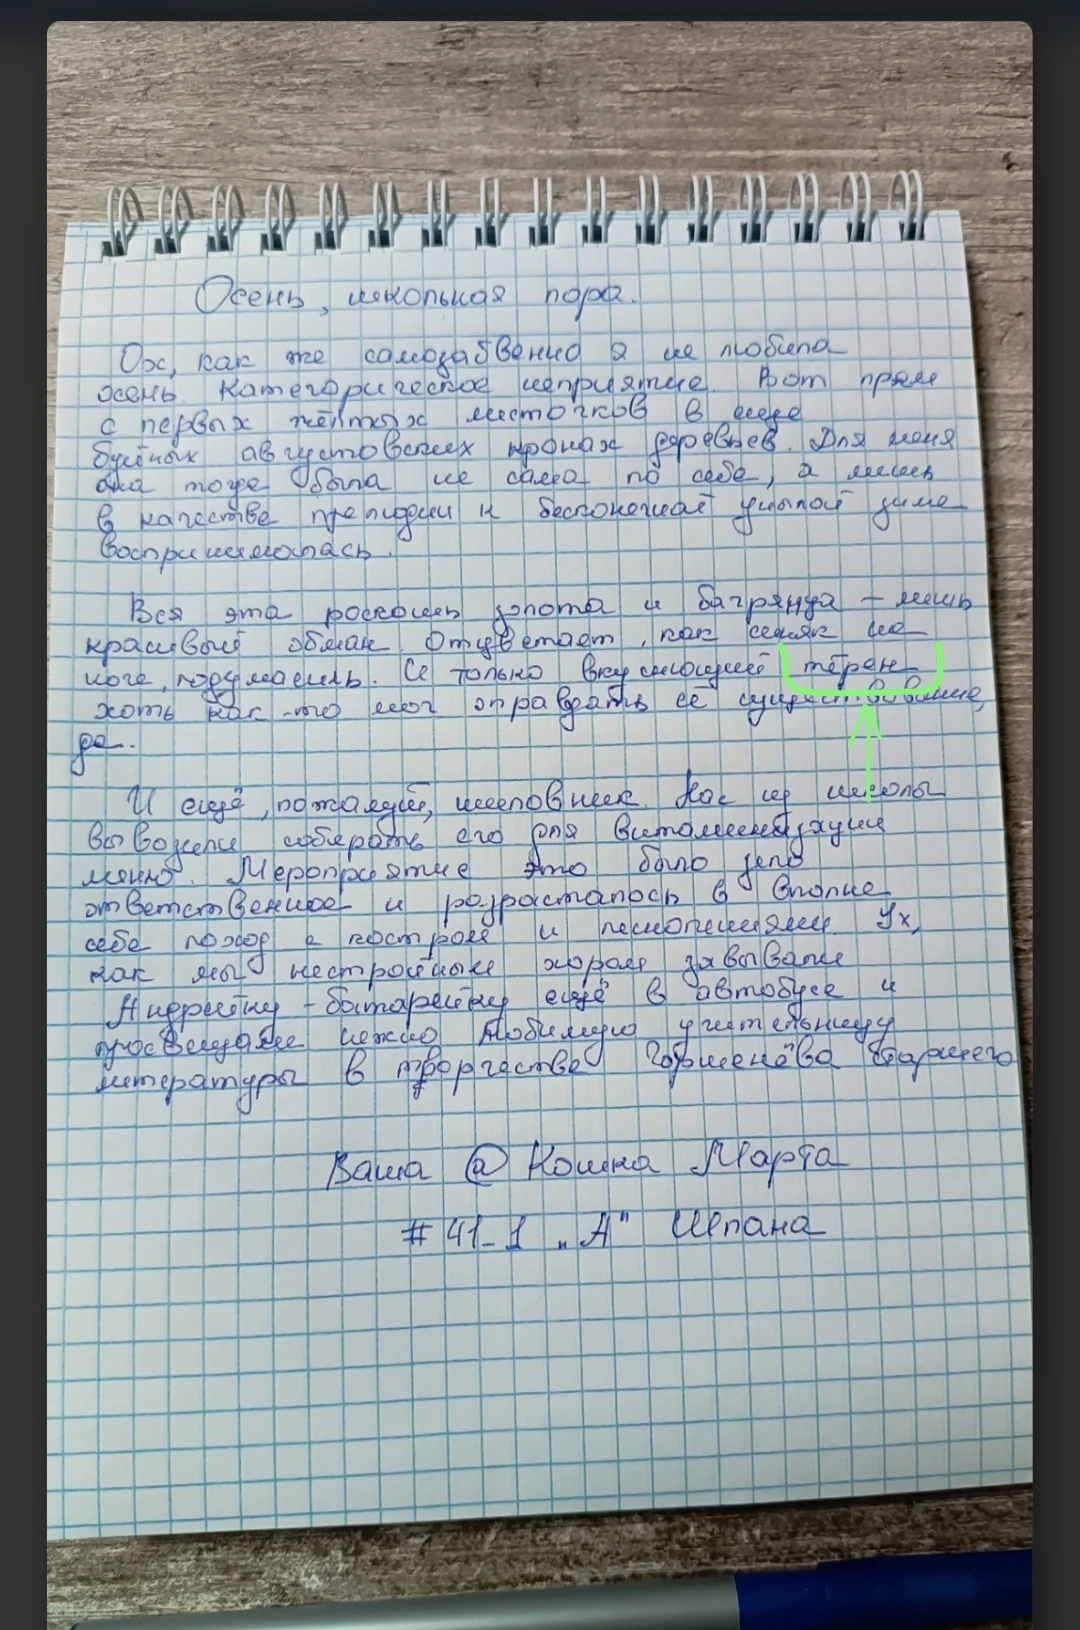 Осень, школьная пора.
Ох, как же самозабвенно я не любила
осень. Категорическое неприятие. Вот прям
с первых жёлтых листочков в еще
буйных августовских кронах деревьев. Для меня
она тоже была не сама по себе, а лишь
в качестве прелюдии к бесконечной унылой зиме
воспринималась.
Вся эта роскошь золота и багрянца - лишь
красивый обман. Отцветает, как синяк на
ноге, подумаешь. И только вкуснющий тёрен
хоть как-то мог оправдать её существование,
да.
И ещё, пожалуй, шиповник. Нас из школы
вывозили собирать его для витаминизации
меню. Мероприятие это было зело
ответственное и разрасталось в вполне
себе поход с костром и песнопениями. Ух,
как мы нестройным хором завывали
Андрейку-батарейку ещё в автобусе и
просвещали нежно любимую учительницу
литературы в творчестве Горшенёва старшего
Ваша @ Кошка Марта
# 41-1 „А" Шпана